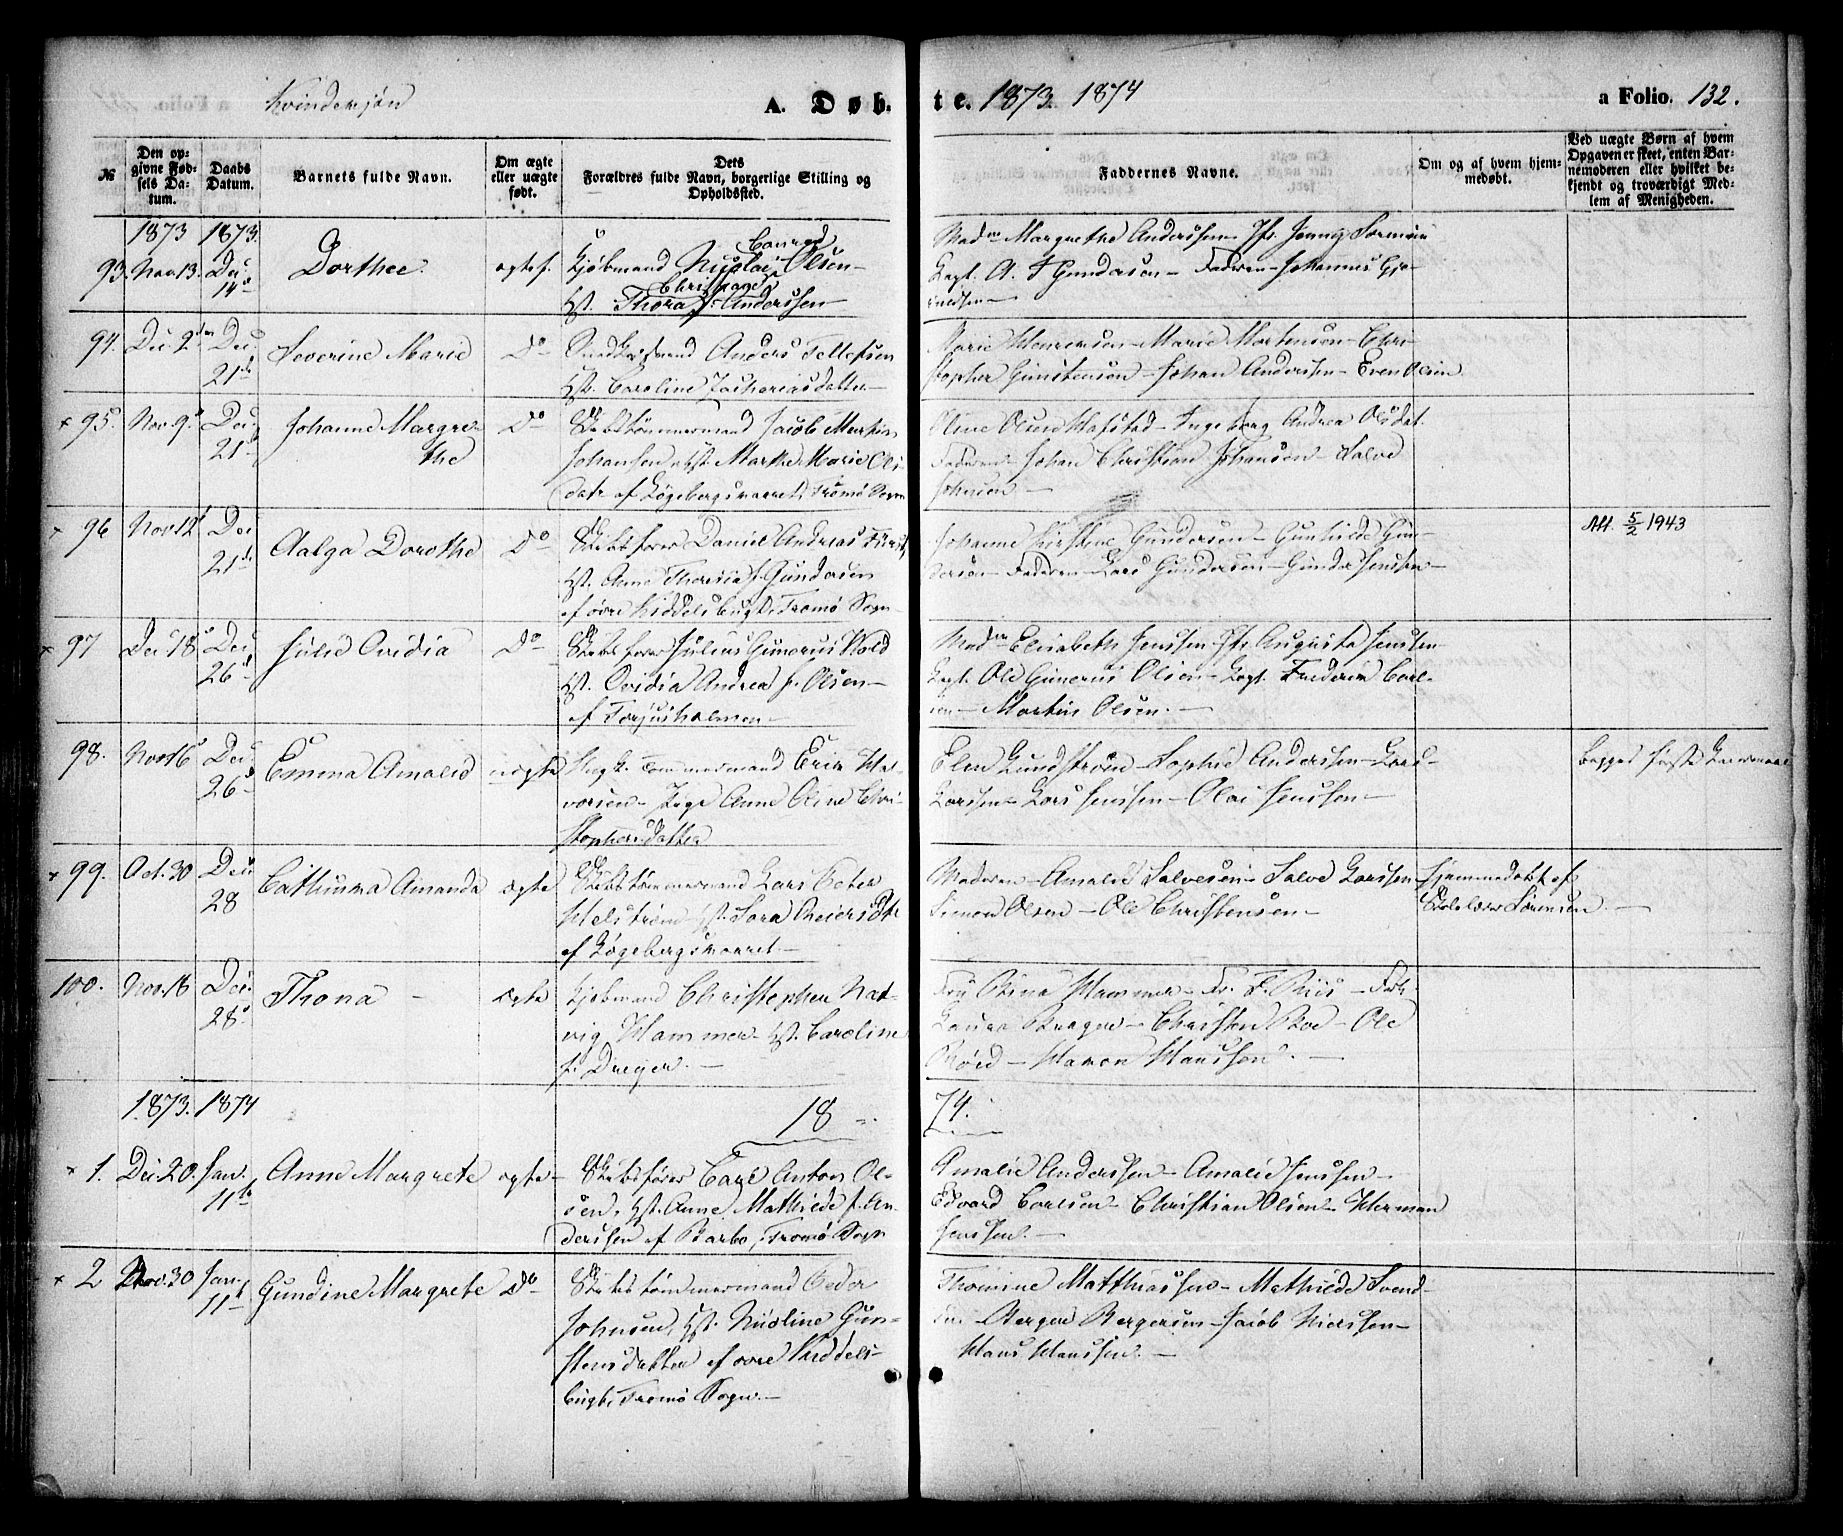 Kvindekjøn
A. Døb.
te. 1873. 1874
a Folio. 132.
№
Den op-
givne Fød-
sels Da-
tum.
Daabs
Datum.
Barnets fulde Navn.
Om ægte
eller uægte
født.
Dets
Forældres fulde Navn, borgerlige Stilling og
Opholdssted.
Faddernes Navne.
Om og af hvem hjem-
medøbt.
Ved uægte Børn af hvem
Opgaven er skeet, enten Bar-
nemoderen eller hvilket be-
kjendt og troværdigt Med-
lem af Menigheden.
1873 1873.
93. Nov. 13. Dec. 14 Dorthee. ægtef.
Conrad
Kjøbmand Nicolai Olsen
Christiane
Hst. Thora f. Anderssen
Margrethe Anderssen Jfr. Jenny
Capt. A. Gundersen Faderen Johannes
94. Dec. 2 Dec. 21 Severine Marie Do
Anders Tellefsen
Hst. Caroline Zachariasdatter
Marie Mortensen Chri-
stopher Gunstensen Johan Anderssen Even Olsen
x 95. Nov. 9. Dec. 21 Johanne Margre-
the Do
Skibstømmermand Jacob Martin
Johansen, Hst. Marthe Marie Ols-
datr af Løgebergsmarret, Tromø Sogn
Oline Olsen Ingeborg Andrea Olsdat.
Faderen Johan Christian Johansen Salve
Johnsen
x 96 Nov. 12 Dec. 21 Aalga Dorothe Do
Skibsfører Daniel Andreas
Hst. Anne Theresia f. Gundersen
af øvre Tromø Sogn
Johanne Kirstine Gundersen Gunhilde Gun-
dersen Faderen Lars Gundersen Gunder Jenssen
Att. 5/2 1943
x 97 Dec. 18 Dec. 26 Julie Ovidia Do
Skibsfører Julius Gunerius Wold
Hst. Ovidia Andrea f. Olsen
af Torjusholmen
Elisabeth Jenssen Jfr. Augusta Jenssen
Capt. Ole Gunerius Olsen Capt. Frederik Carl-
sen Martin Olsen.
98. Nov. 16 Dec. 26 Emma Amalie uægte
Ungk. Tømmermand Erik Hal-
vorsen Pige Anne Oline Chri-
stophersdatter
Elen Lundstrøm Sophie Anderssen Lars
Larssen Lars Jenssen Olai Jenssen
begges første Leiermaal
x 99. Oct. 30 Dec. 28 Cathinna Amanda ægte
Skibstømmermand Lars Peter
Helstrøm Hst. Sara Reiersdtr
af Løgebergsmarret
Moderen Amalie Salvesen Salve Larssen
Simon Olsen Ole Christensen
Hjemmedøbt af
Skolelærer Sørensen.
100. Nov. 18 Dec. 28 Thona ægte
Kjøbmand Christopher Nat-
vig Hammer Hst. Caroline
f. Dreyer.
Fru Hammer Fr. F. Riis
Laura Christen Boe Ole
Hansen.
1873. 1874
18 74.
x 1. Dec. 20. Jan. 11 Anne Margrete ægte
Skibsfører Carl Anton Ol-
sen, Hst. Anne Mathilde f. An-
derssen af Barbo, Tromø Sogn
Amalie Anderssen Amalie Jenssen
Edvard Carlsen Christian Olsen Herman
Jenssen.
x 2 Nov. 30 Jan. 11 Gundine Margrete Do
Skibstømmermand Peder
Johnsen, Hst. Nicoline Gun-
stensdatter af øvre
bugt, Tromø Sogn.
Thomine Matthiassen Mathilde Svend-
sen Berger Bergersen Jacob Nielssen
Hans Hanssen.